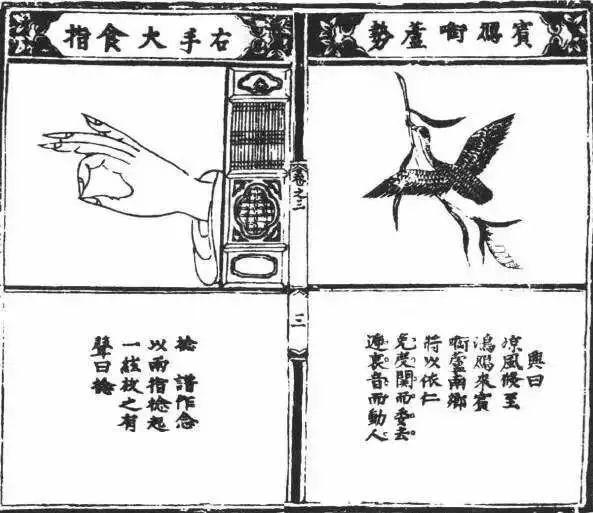 賓鴈啣蘆勢
興曰
凉風候至
鴻鴈來賓
啣蘆南鄉
將以依仁
度關而委去。
音而動人。
卷之三
三
右手大食指
捻 譜作念
以兩指捻起
一絃放之有
聲曰捻